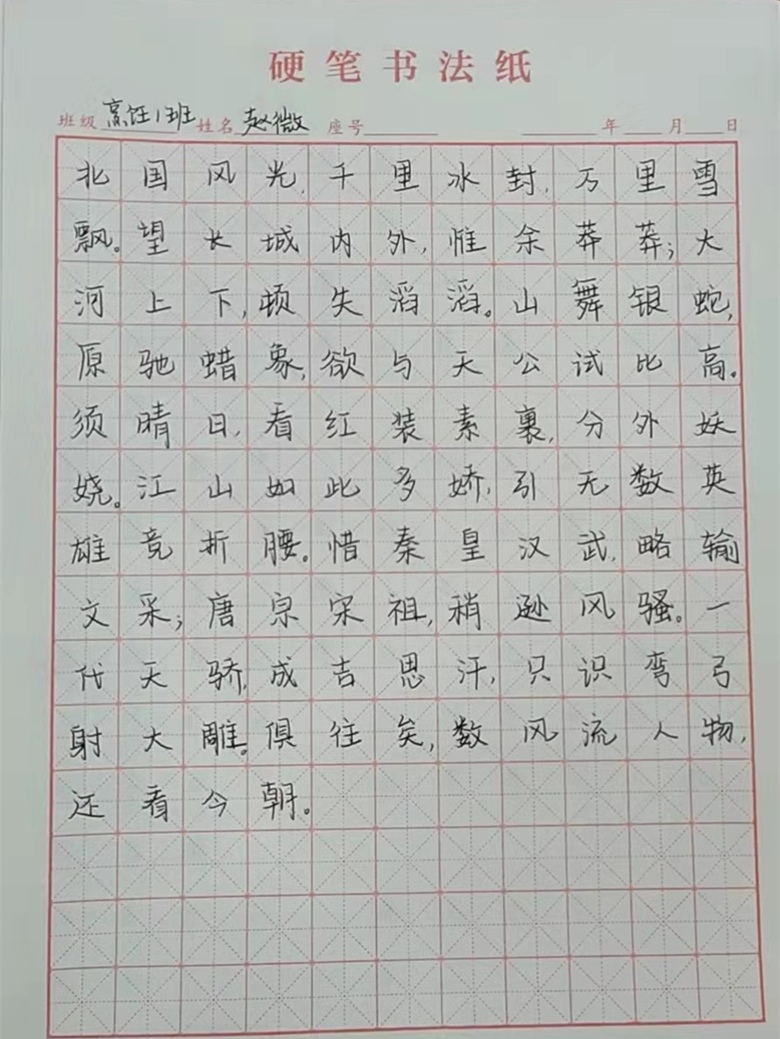 硬笔书法纸
班级 烹饪1班 姓名 赵微 座号 年 月 日
北国风光,千里水封,万里雪
飘。望长城内外,惟余莽莽;大
河上下,顿失滔滔。山舞银蛇,
原驰蜡象,欲与天公试比高。
须晴日,看红装素裹,分外妖
娆。江山如此多娇,引无数英
雄竞折腰。惜秦皇汉武,略输
文采;唐宗宋祖,稍逊风骚。一
代天骄,成吉思汗,只识弯弓
射大雕。俱往矣,数风流人物,
还看今朝。